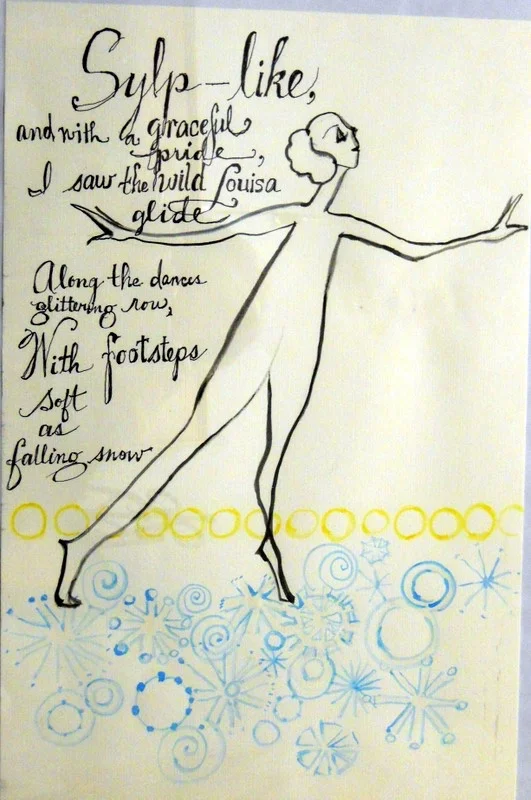 Sylp-like,
and with a graceful
pride,
I saw the wild Louisa
glide
Along the dances
glittering row,
With footsteps
soft
as
falling snow